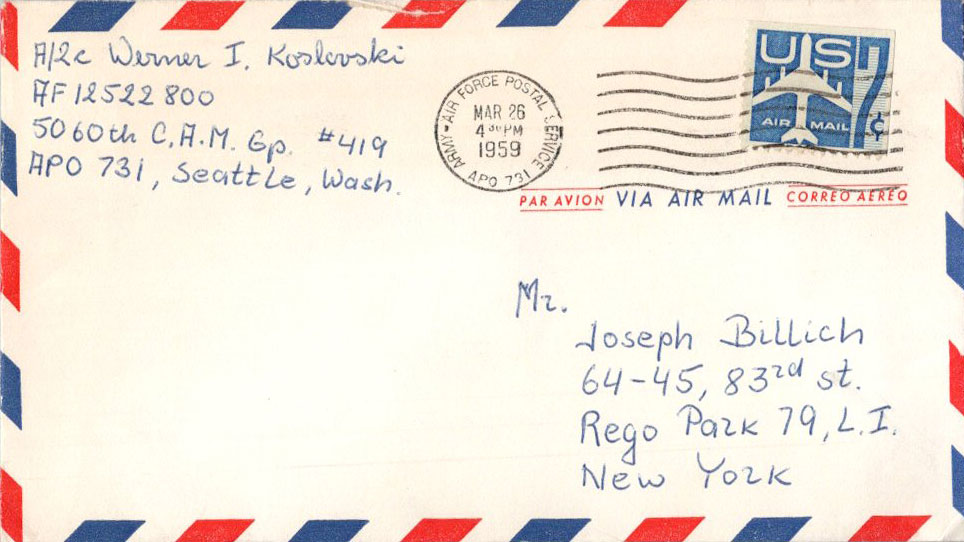 A/2c Werner I. Koslovski
AF 12522800
5060th C.A.M. Gp. #419
APO 731, Seattle, Wash.
ARMY-AIR FORCE POSTAL SERVICE
MAR 26
4 30 PM
1959
APO 731
US
AIR MAIL
7¢
PAR AVION VIA AIR MAIL CORREO AEREO
Mr.
Joseph Billich
64-45, 83rd st.
Rego Park 79, L.I.
New York